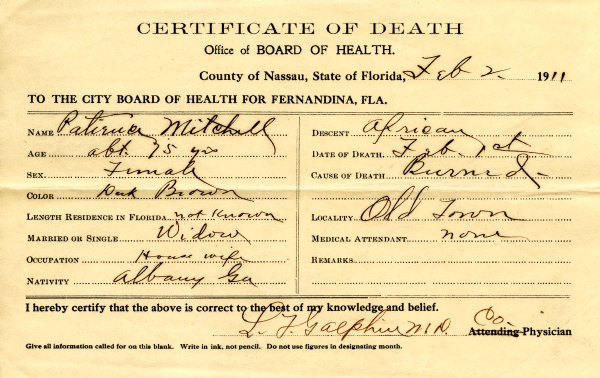 CERTIFICATE OF DEATH
Office of BOARD OF HEALTH.
County of Nassau, State of Florida, Feb 2 1911
TO THE CITY BOARD OF HEALTH FOR FERNANDINA, FLA.
NAME Patience Mitchell
AGE abt 75 yrs
SEX. Female
COLOR Dark Brown
LENGTH RESIDENCE IN FLORIDA not Known
MARRIED OR SINGLE Widow
OCCUPATION House wife
NATIVITY Albany Ga
DESCENT African
DATE OF DEATH. Feb 1st
CAUSE OF DEATH Burned
LOCALITY Old Town
MEDICAL ATTENDANT none
REMARKS
I hereby certify that the above is correct to the best of my knowledge and belief.
L. F. Galphin M.D. Co. Attending Physician
Give all information called for on this blank. Write in ink, not pencil. Do not use figures in designating month.